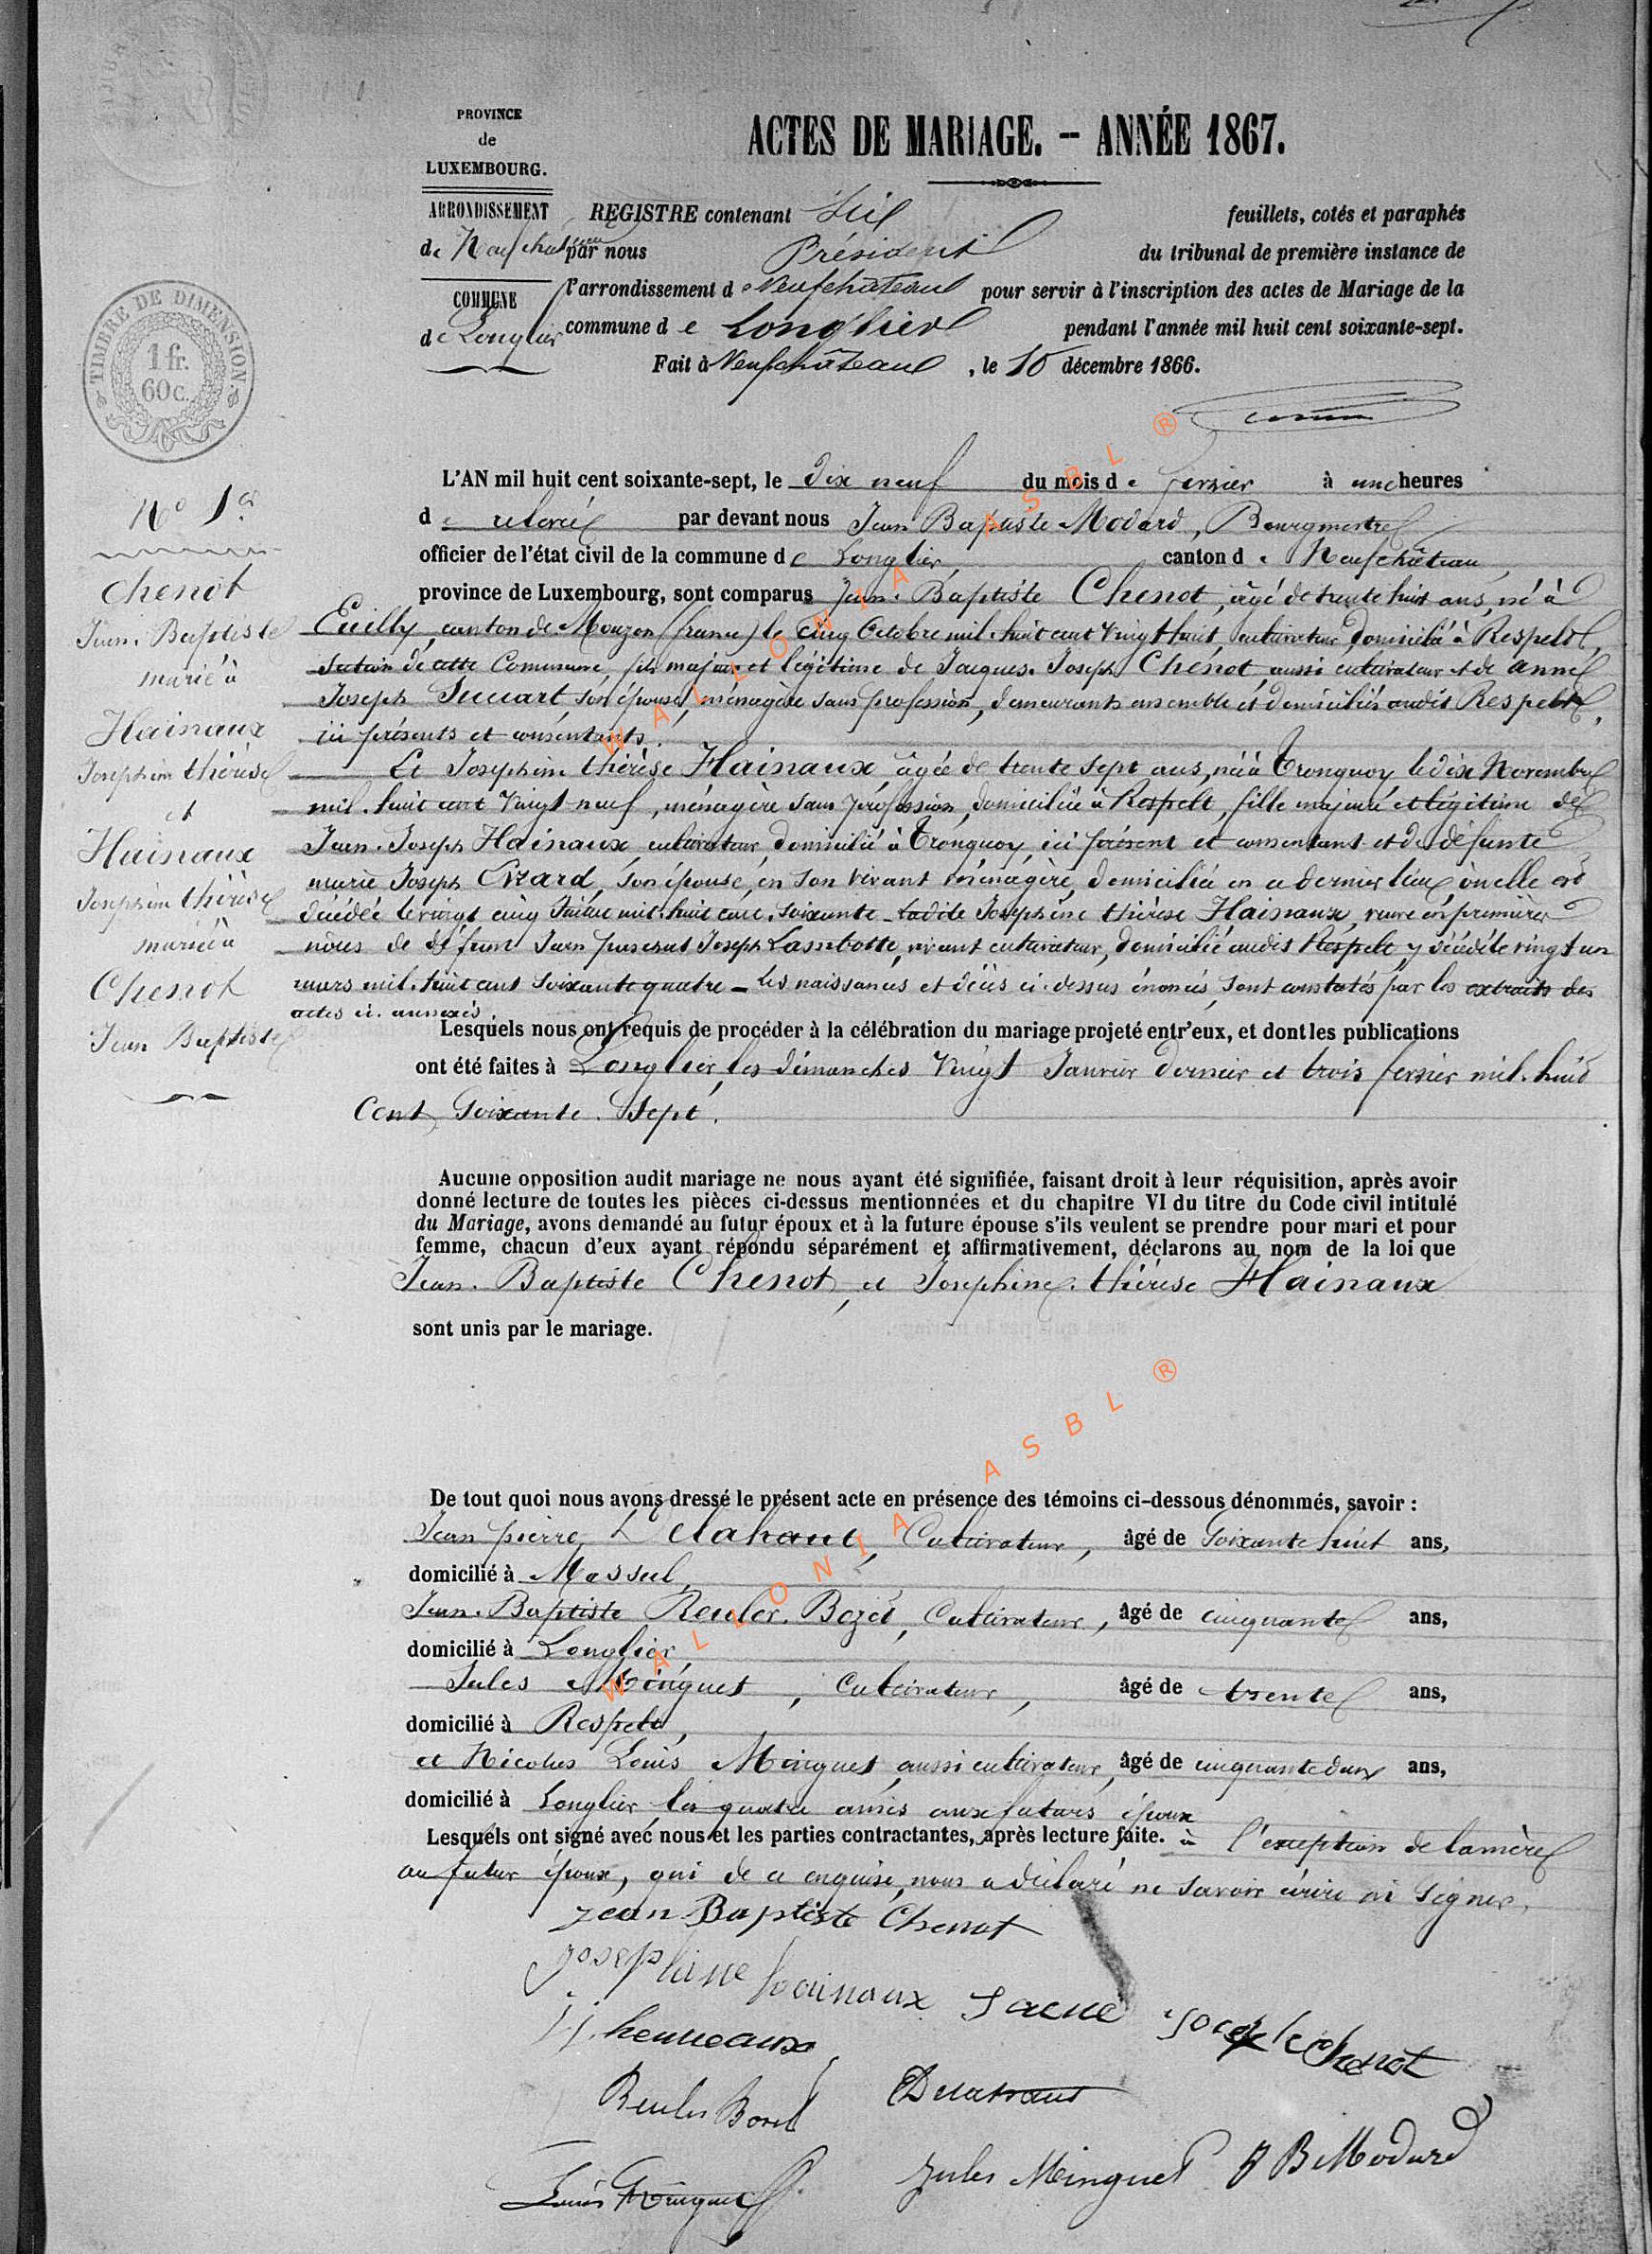 PROVINCE
de
LUXEMBOURG.
ACTES DE MARIAGE. — ANNÉE 1867.
ARRONDISSEMENT
de Neufchateau
COMMUNE
de Longlier
REGISTRE contenant Six feuillets, cotés et paraphés
par nous Président du tribunal de première instance de
l'arrondissement de Neufchâteau pour servir à l'inscription des actes de Mariage de la
commune de Longlier pendant l'année mil huit cent soixante-sept.
Fait à Neufchâteau, le 10 décembre 1866.
TIMBRE DE DIMENSION.
1 fr.
60 c.
N° 1er
Chenot
Jean-Baptiste
marié à
Hainaux
Josephine thérèse
et
Hainaux
Josephine thérèse
mariée à
Chenot
Jean Baptiste
L'AN mil huit cent soixante-sept, le dix neuf du mois de fevrier à une heures
de relevée par devant nous Jean Baptiste Modard, Bourgmestre
officier de l'état civil de la commune de Longlier, canton de Neufchâteau,
province de Luxembourg, sont comparus Jean-Baptiste Chenot, âgé de trente huit ans, né à
Euilly, canton de Mouzon (france) le cinq Octobre mil-huit cent vingt huit, cultivateur, domicilié à Respelt,
section de cette Commune, fils majeur et légitime de Jacques-Joseph Chenot, aussi cultivateur et de anne
Joseph son épouse, ménagère sans profession, demeurants ensemble et domiciliés audit Respelt,
ici présents et consentants.
Et Josephine thérèse Hainaux, âgée de trente sept ans, née à Tronquoy le dix Novembre
mil-huit cent vingt-neuf, ménagère sans profession, domiciliée à Respelt, fille majeure et légitime de
Jean-Joseph Hainaux, cultivateur, domicilié à Tronquoy, ici présent et consentant et de défunte
marie Joseph Evrard, son épouse, en son vivant ménagère, domiciliée en ce dernier lieu où elle est
décédée le vingt cinq mil-huit cent-soixante - ladite Josephine thérèse Hainaux, veuve en premières
nôces de défunt Jean Joseph Lambotte, vivant cultivateur, domicilié audit Respelt y décédé le vingt un
mars mil-huit cent soixante quatre - Les naissances et décès ci-dessus énoncés, sont constatés par les extraits des
actes ci-annexés.
Lesquels nous ont requis de procéder à la célébration du mariage projeté entr'eux, et dont les publications
ont été faites à Longlier, les dimanches vingt Janvier dernier et trois fevrier mil-huit
Cent Soixante-Sept.
Aucune opposition audit mariage ne nous ayant été signifiée, faisant droit à leur réquisition, après avoir
donné lecture de toutes les pièces ci-dessus mentionnées et du chapitre VI du titre du Code civil intitulé
du Mariage, avons demandé au futur époux et à la future épouse s'ils veulent se prendre pour mari et pour
femme, chacun d'eux ayant répondu séparément et affirmativement, déclarons au nom de la loi que
Jean-Baptiste Chenot, et Josephine-thérèse Hainaux
sont unis par le mariage.
De tout quoi nous avons dressé le présent acte en présence des témoins ci-dessous dénommés, savoir :
Jean pierre Delahaut, Cultivateur, âgé de Soixante huit ans,
domicilié à Massul,
Jean-Baptiste Reuler-Bozet, Cultivateur, âgé de cinquante ans,
domicilié à Longlier,
Jules Minguet, Cultivateur, âgé de trente ans,
domicilié à Respelt,
et Nicolas Louis Minguet, aussi cultivateur, âgé de cinquante deux ans,
domicilié à Longlier les quatre amis aux futurs époux
Lesquels ont signé avec nous et les parties contractantes, après lecture faite. à l'exception de la mère
au futur époux, qui de ce enquise, nous a déclaré ne savoir écrire ni signer.
Jean Baptiste Chenot
Josephine hainaux
Jacque Joseph Chenot
j. j. henneaux
Delahaut
Reuler Bozet
Jules Minguet
J B Modard
Louis Minguet
WALLONIA ASBL ®
WALLONIA ASBL ®